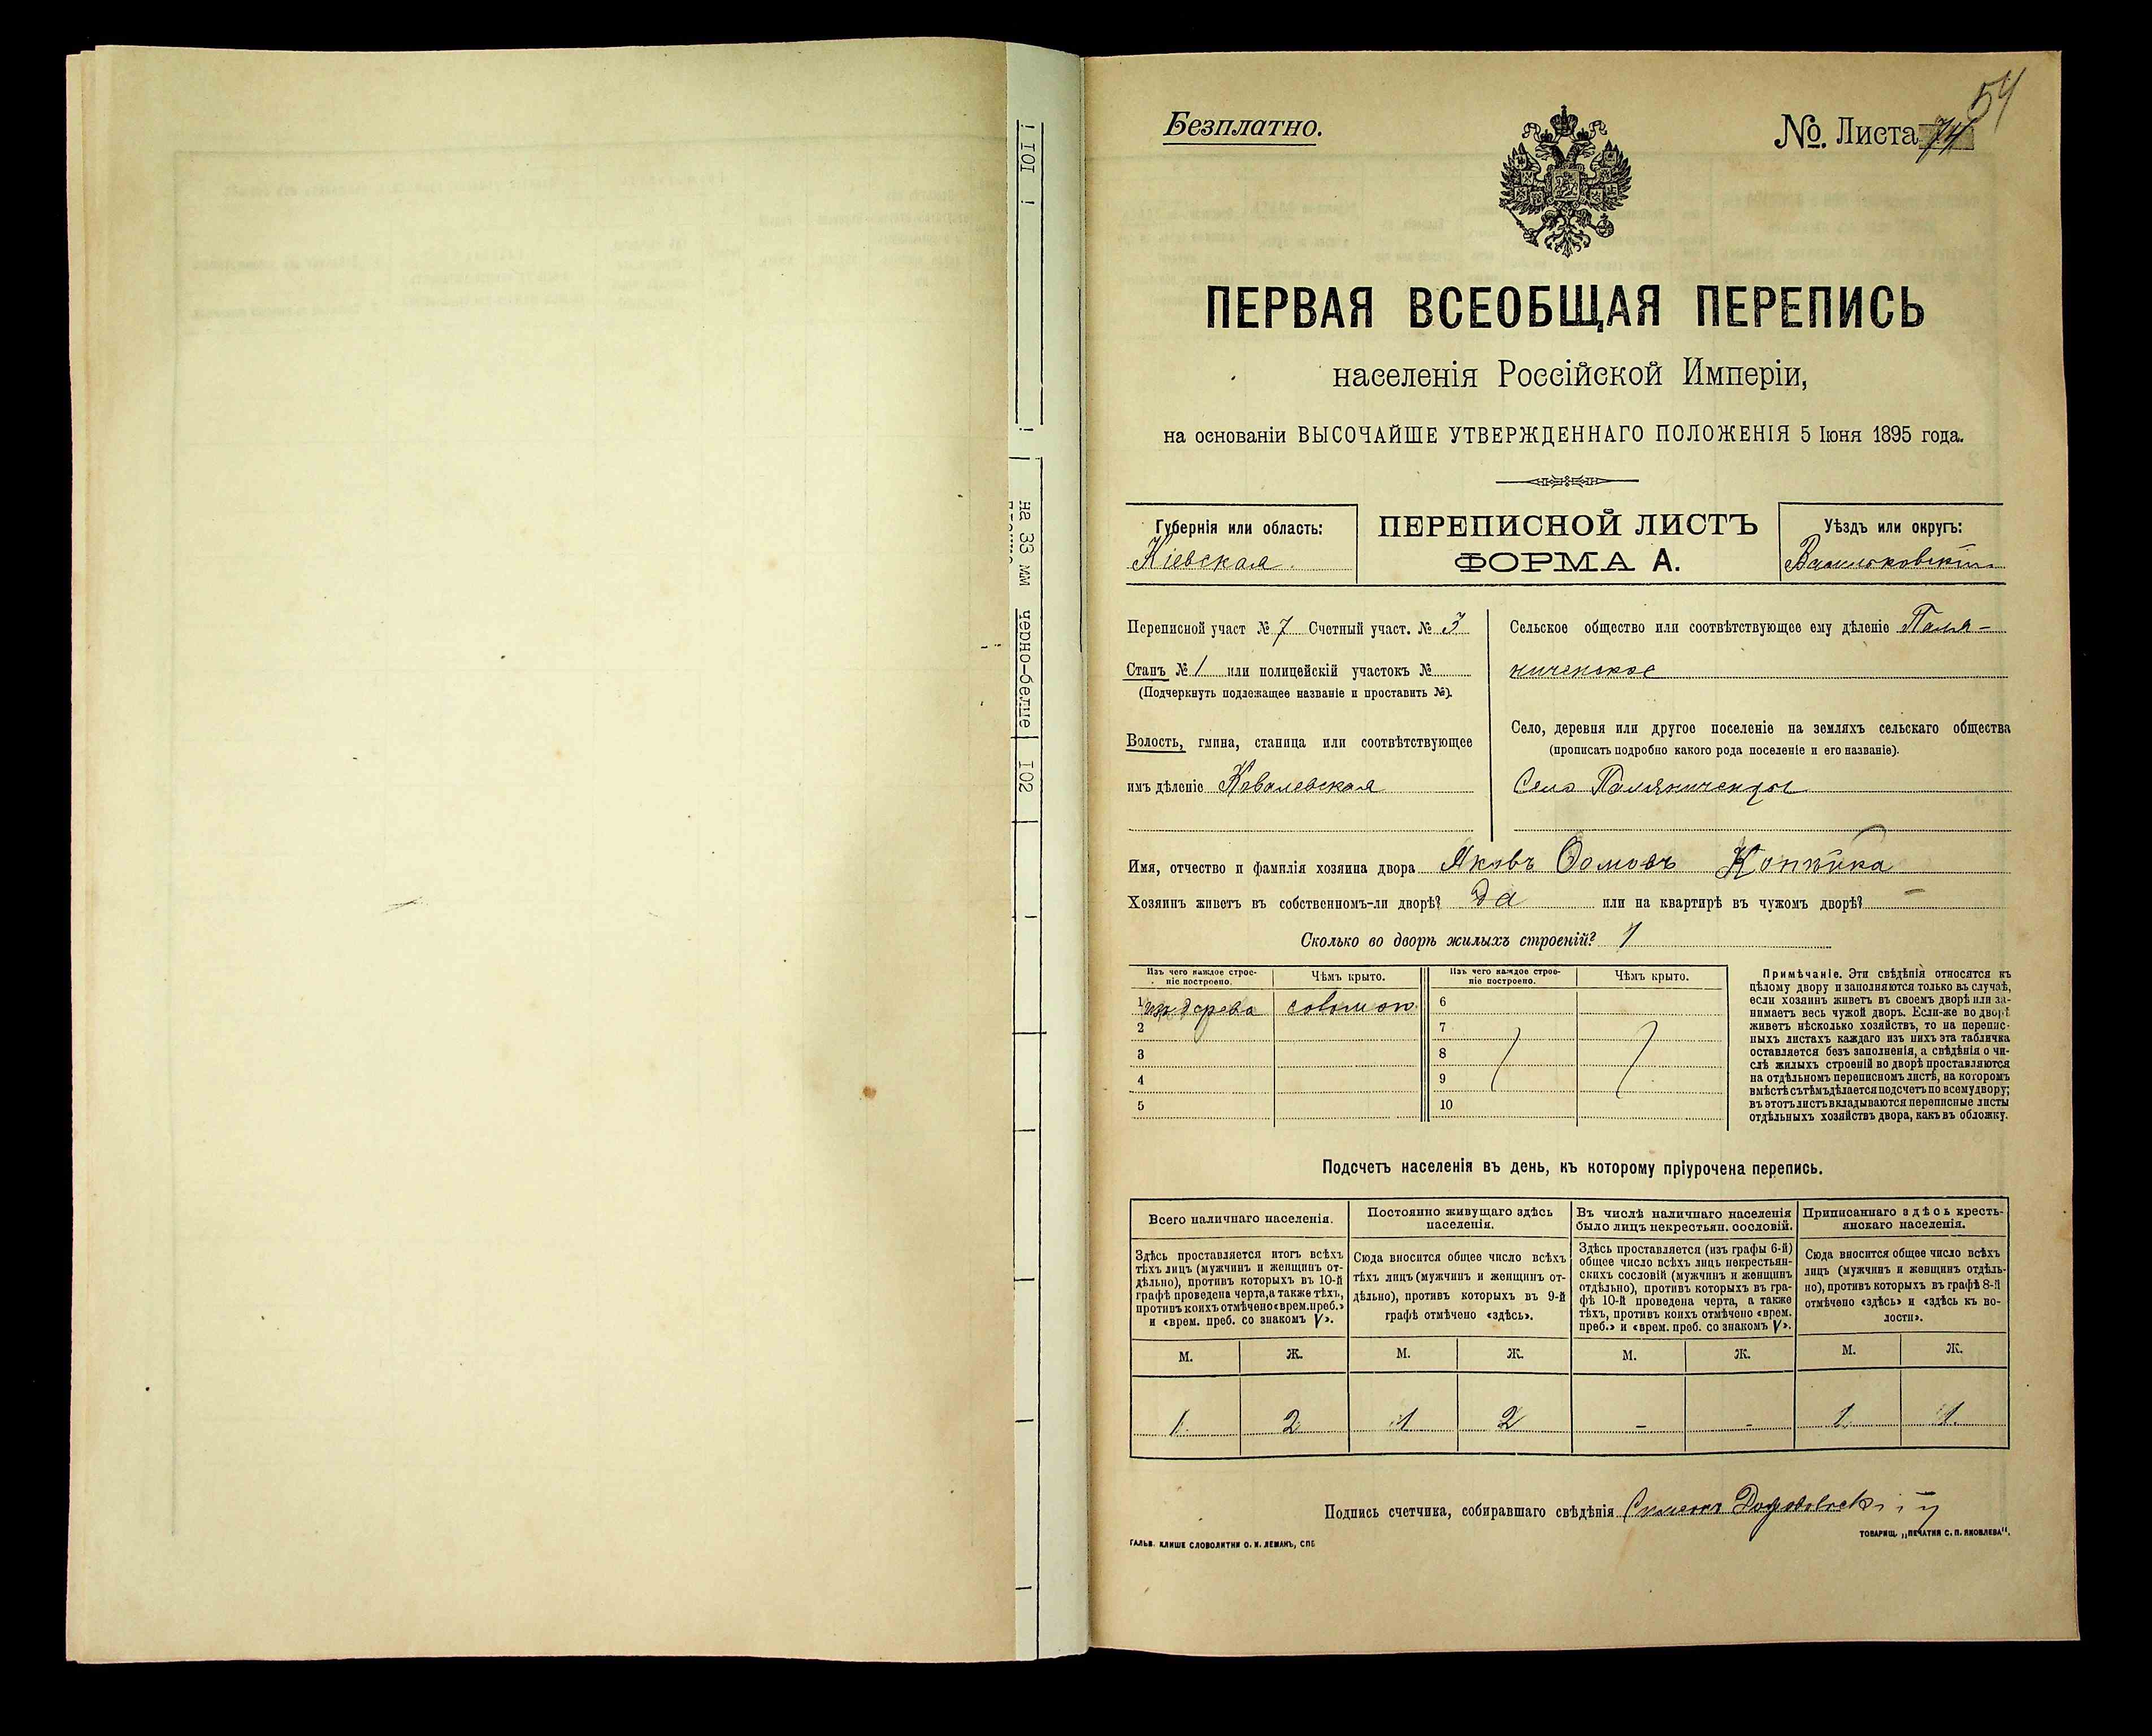 ! IOI !
на 33 мм черно-белые IO2
54
Безплатно.
№. Листа 74
ПЕРВАЯ ВСЕОБЩАЯ ПЕРЕПИСЬ
населенія Россійской Имперіи,
на основаніи ВЫСОЧАЙШЕ УТВЕРЖДЕННАГО ПОЛОЖЕНІЯ 5 Іюня 1895 года.
Губернія или область:
Кіевская.
ПЕРЕПИСНОЙ ЛИСТЪ
ФОРМА А.
Уѣздъ или округъ:
Васильковскій
Переписной участ № 7 Счетный участ. № 3
Станъ № 1 или полицейскій участокъ №
(Подчеркнуть подлежащее названіе и проставить №).
Волость, гмина, станица или соотвѣтствующее
имъ дѣленіе Ковалевская
Сельское общество или соотвѣтствующее ему дѣленіе Поля-
ниченское
Село, деревня или другое поселеніе на земляхъ сельскаго общества
(прописать подробно какого рода поселеніе и его названіе).
Село Поляниченцы
Имя, отчество и фамилія хозяина двора Яковъ Ѳомовъ Копѣйка
Хозяинъ живетъ въ собственномъ-ли дворѣ? Да или на квартирѣ въ чужомъ дворѣ? —
Сколько во дворѣ жилыхъ строеній? 1
Изъ чего каждое строе-
ніе построено.
Чѣмъ крыто.
Изъ чего каждое строе-
ніе построено.
Чѣмъ крыто.
1 изъ дерева соломой 6
2 7
3 8
4 9
5 10
Примѣчаніе. Эти свѣдѣнія относятся къ
цѣлому двору и заполняются только въ случаѣ,
если хозяинъ живетъ въ своемъ дворѣ или за-
нимаетъ весь чужой дворъ. Если-же во дворѣ
живетъ нѣсколько хозяйствъ, то на перепис-
ныхъ листахъ каждаго изъ нихъ эта табличка
оставляется безъ заполненія, а свѣдѣнія о чи-
слѣ жилыхъ строеній во дворѣ проставляются
на отдѣльномъ переписномъ листѣ, на которомъ
вмѣстѣ съ тѣмъ дѣлается подсчетъ по всему двору;
въ этотъ листъ вкладываются переписные листы
отдѣльныхъ хозяйствъ двора, какъ въ обложку.
Подсчетъ населенія въ день, къ которому пріурочена перепись.
Всего наличнаго населенія.
Здѣсь проставляется итогъ всѣхъ
тѣхъ лицъ (мужчинъ и женщинъ от-
дѣльно), противъ которыхъ въ 10-й
графѣ проведена черта, а также тѣхъ,
противъ коихъ отмѣчено «врем. преб.»
и «врем. преб. со знакомъ V».
Постоянно живущаго здѣсь
населенія.
Сюда вносится общее число всѣхъ
тѣхъ лицъ (мужчинъ и женщинъ от-
дѣльно), противъ которыхъ въ 9-й
графѣ отмѣчено «здѣсь».
Въ числѣ наличнаго населенія
было лицъ некрестьян. сословій.
Здѣсь проставляется (изъ графы 6-й)
общее число всѣхъ лицъ некрестьян-
скихъ сословій (мужчинъ и женщинъ
отдѣльно), противъ которыхъ въ гра-
фѣ 10-й проведена черта, а также
тѣхъ, противъ коихъ отмѣчено «врем.
преб.» и «врем. преб. со знакомъ V».
Приписаннаго здѣсь кресть-
янскаго населенія.
Сюда вносится общее число всѣхъ
лицъ (мужчинъ и женщинъ отдѣль-
но), противъ которыхъ въ графѣ 8-й
отмѣчено «здѣсь» и «здѣсь къ во-
лости».
М. Ж. М. Ж. М. Ж. М. Ж.
1 2 1 2 - - 1 1
Подпись счетчика, собиравшаго свѣдѣнія
ГАЛЬВ. КЛИШЕ СЛОВОЛИТНИ О. И. ЛЕМАНЪ, СПБ
ТОВАРИЩ. „ПЕЧАТНЯ С. П. ЯКОВЛЕВА".